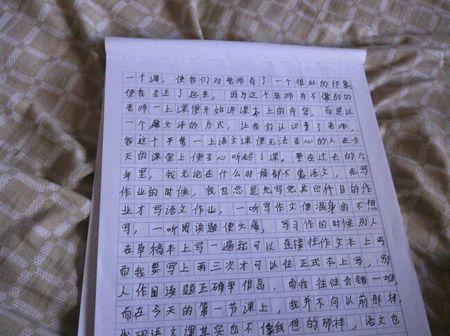 一个调，使我们对老师有了一个很好的印象
使我去注了起来，因为这个老师并不像别的
老师一上课便开始讲课本上的内容，而是以
一个方法的方式，让我们认识了老师，
我这个平常一上语文课便无法专心的人在今
天的课堂上便专心听起了课。要在过去的六
年里，我无论在什么时候都不爱语文，在写
作业的时候，我也总是先写完其它科目的作
业才写语文作业，一听写作文便浑身的不想
写，一听阅读题便头痛，写习作的时候别人
在草稿本上写一遍就可以直接往作文本上写
而我要写上两三次才可以往正式本上写，别
人作阅读题正确率很高，而我往往会错一堆
而在今天的第一节课上，我并不向以前那样
发现语文课其实也不像我想的那样，语文也